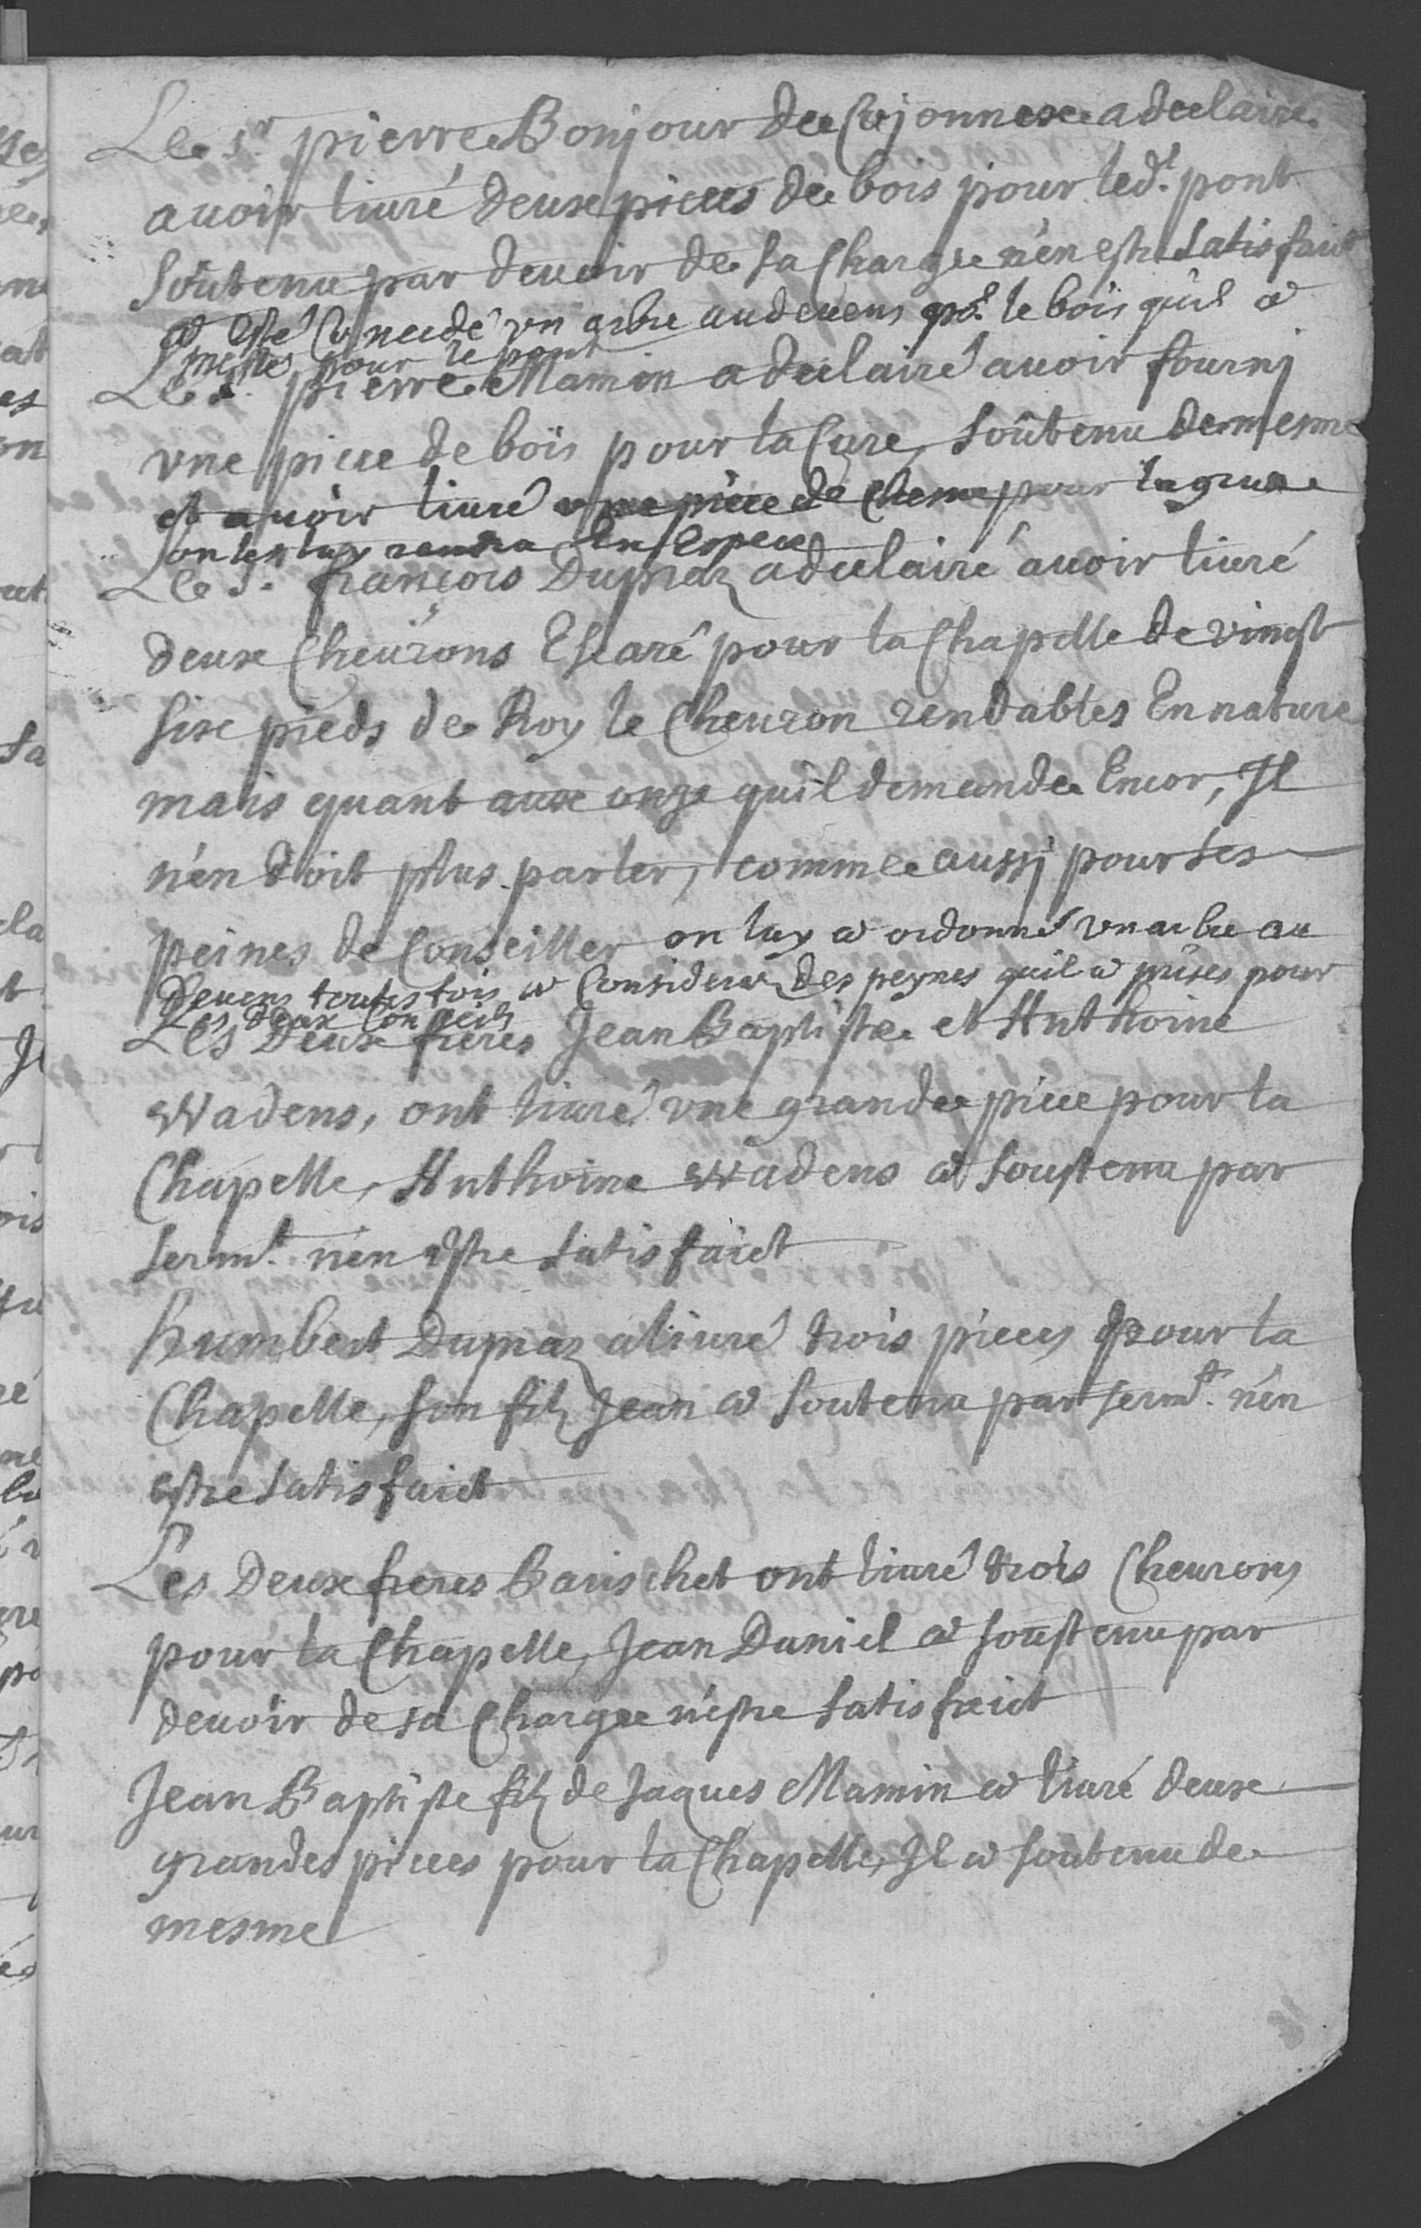 Le Sr. pierre Bonjour de Cojonnex a declairé
auoir liuré deux pieces de bois pour led.t pont
soûtenu par deuoir de sa Charge n'en estre satisfaict
a esté Concedé vn arbre au deuens po.r le bois quil a
pour le pont
Le S. pierre Mamin a declairé auoir fournj
vne piece de bois pour la Cure, soûtenu de mesme
et auoir liuré vne piece de Chesne pour la
on les luy rendra En Espece
Le S. françois Dupraz a declairé auoir liuré
deux Cheurons Escaré pour la Chapelle de vingt
six pieds de Roy le Cheuron rendables En nature
mais quant aux onze quil demande Encor, Jl
n'en doit plus parler, comme aussj pour ses
peines de Conseiller on luy a ordonné vn arbre au
Deuens toutesfois a Consideré des peynes quil a prises pour
Les deux Conseils
Les Deux freres Jean Baptiste et Anthoine
Wadens, ont liuré vne grande piece pour la
Chapelle, Anthoine Wadens a soustenu par
serm.t n'en estre satisfaict
humbert Dupraz a liuré trois pieces pour la
Chapelle, son filz Jean a soutenu par serm.t n'en
estre satisfaict
Les Deux freres Barischet ont liuré trois Cheurons
pour la Chapelle, Jean Daniel a soustenu par
deuoir de sa Charge n'estre satisfaict
Jean Baptiste filz de Jaques Mamin a liuré deux
grandes pieces pour la Chapelle, Jl a soûtenu de
mesme